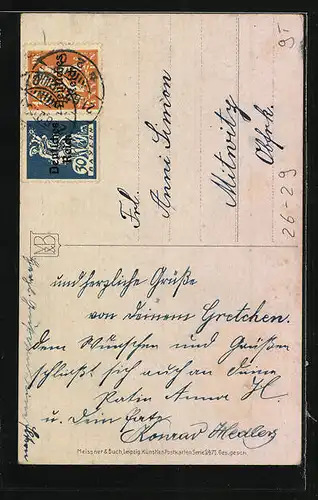 95
Deutsches
Reich
30
Frl.
Anni Simon
Mitwitz
Obfrk.
26-29
MB
und herzliche Grüße
von Deinem Gretchen.
Dem Wunschen und Grüßen
schließt sich auch an Deine
Patin Anna H.
u. Dein
Konrad Hedler
Meissner & Buch, Leipzig. Künstler-Postkarten Serie Ges. gesch.